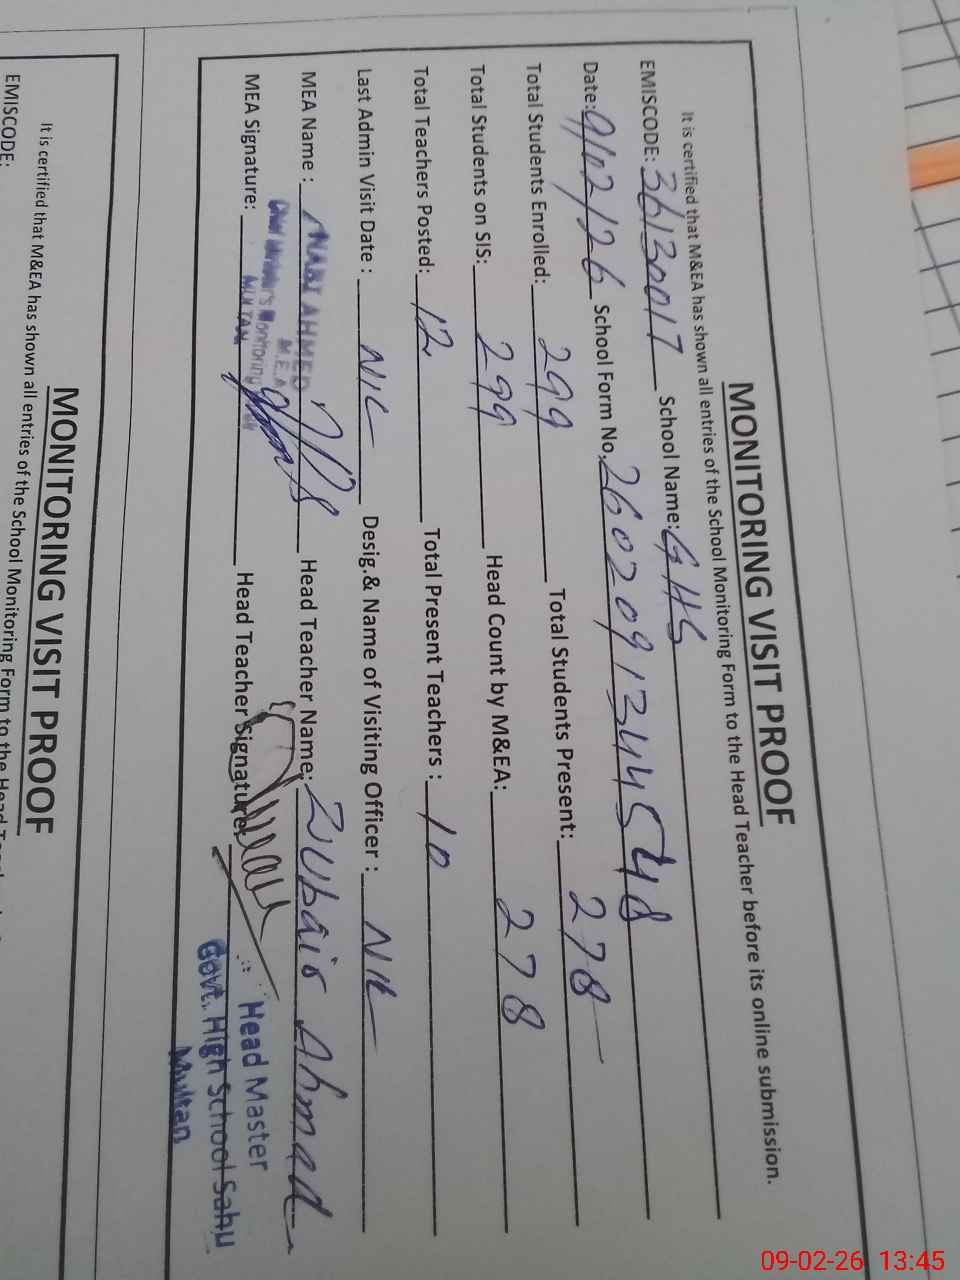 MONITORING VISIT PROOF
It is certified that M&EA has shown all entries of the School Monitoring Form to the Head Teacher before its online submission.
EMISCODE: 36130017 School Name: GHS
Date: 9/02/26 School Form No. 2602091344548
Total Students Enrolled: 299 Total Students Present: 278
Total Students on SIS: 299 Head Count by M&EA: 278
Total Teachers Posted: 12 Total Present Teachers : 10
Last Admin Visit Date : NIL Desig.& Name of Visiting Officer : NIL
MEA Name : AHMED Head Teacher Name: Zubair Ahmad
M.E.A
Monitoring
MULTAN
MEA Signature: Head Teacher Signature:
Head Master
Govt. High School Sahu
Multan
MONITORING VISIT PROOF
It is certified that M&EA has shown all entries of the School Monitoring Form to the Head
EMISCODE:
09-02-26 13:45